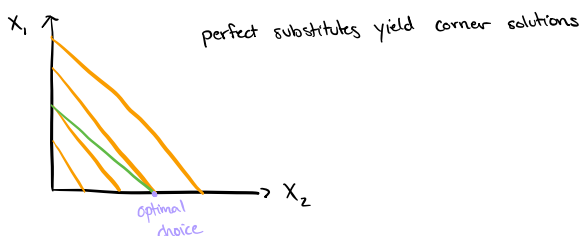 X₁
perfect substitutes yield corner solutions
X₂
optimal
choice